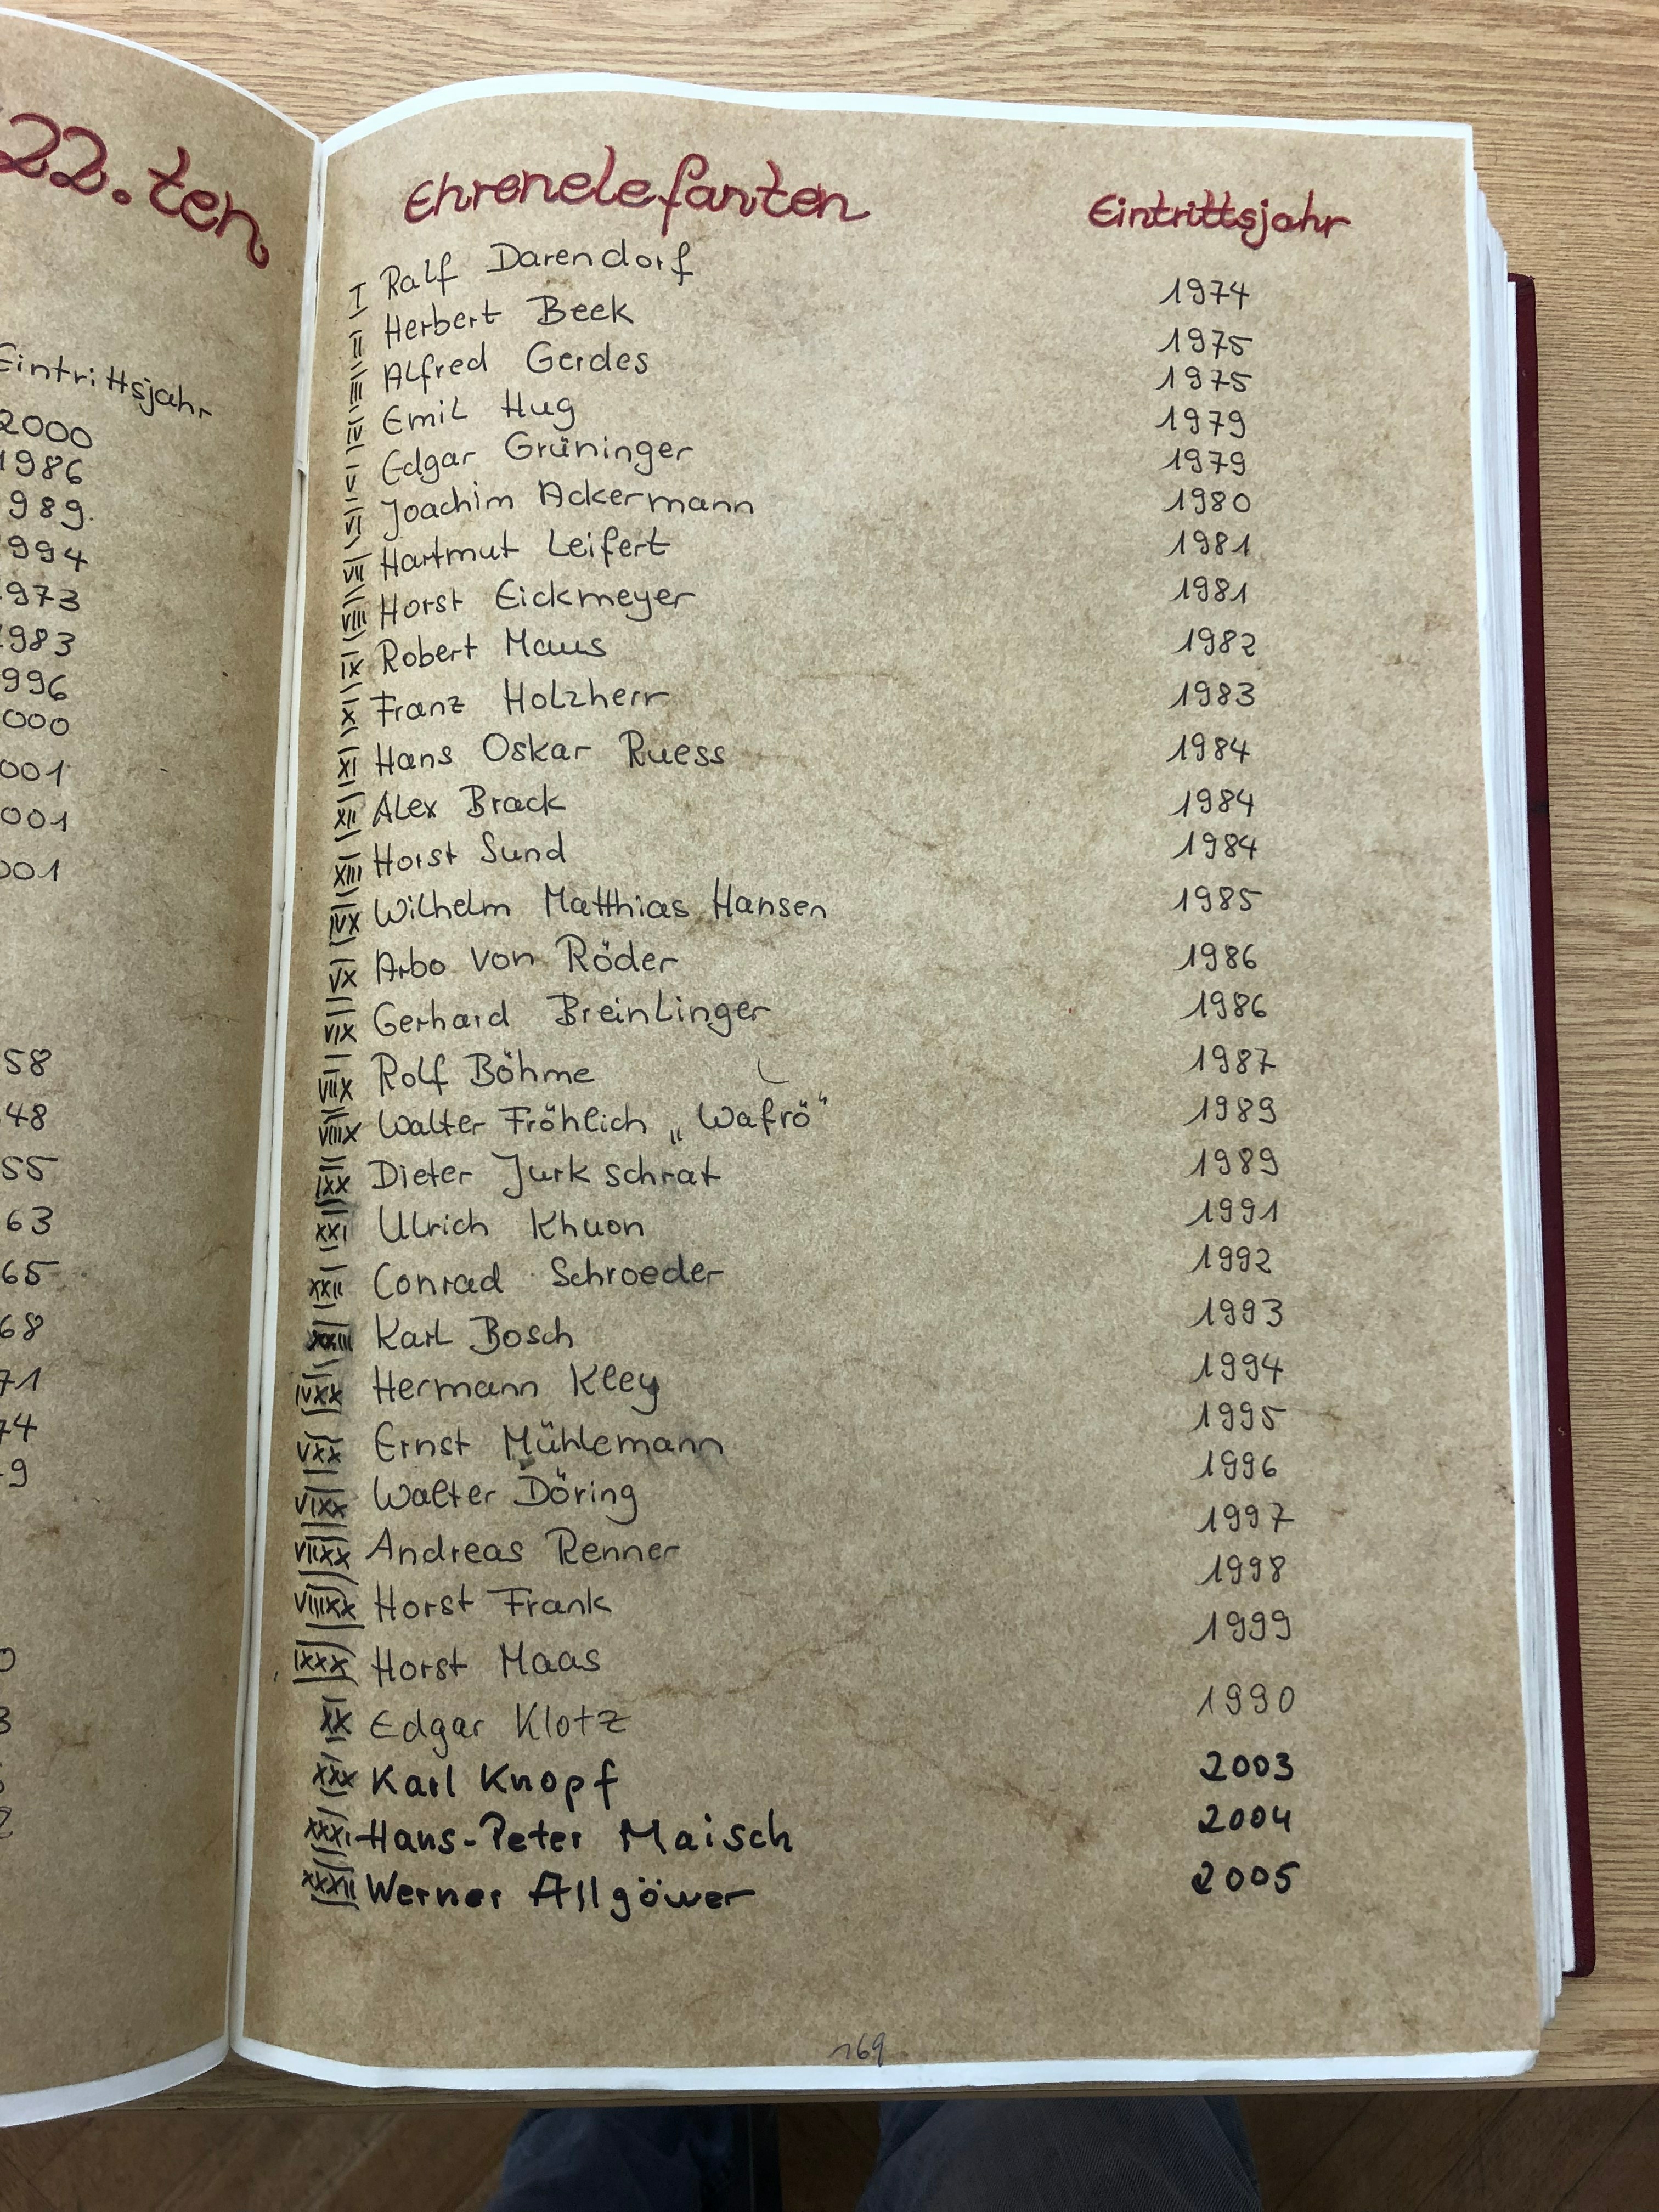 22.ten
Eintrittsjahr
2000
1986
989.
994
973
983
996
000
001
001
001
58
48
55
63
65
68
71
74
9
Ehrenelefanten Eintrittsjahr
I Ralf Darendorf 1974
II Herbert Beek 1975
III Alfred Gerdes 1975
IV Emil Hug 1979
V Edgar Grüninger 1979
VI Joachim Ackermann 1980
VII Hartmut Leifert 1981
VIII Horst Eickmeyer 1981
IX Robert Maus 1982
X Franz Holzherr 1983
XI Hans Oskar Ruess 1984
XII Alex Brack 1984
XIII Horst Sund 1984
IVX Wilhelm Matthias Hansen 1985
VX Arbo von Röder 1986
VIX Gerhard Breinlinger 1986
VIIX Rolf Böhme 1987
VIIIX Walter Fröhlich „Wafrö“ 1989
IXX Dieter Jurkschrat 1989
XXI Ulrich Khuon 1991
XXII Conrad Schroeder 1992
XXIII Karl Bosch 1993
IVXX Hermann Kley 1994
VXX Ernst Mühlemann 1995
VIXX Walter Döring 1996
VIIXX Andreas Renner 1997
VIIIXX Horst Frank 1998
IXXX Horst Maas 1999
XX Edgar Klotz 1990
XXX Karl Knopf 2003
XXXI Hans-Peter Maisch 2004
XXXII Werner Allgöwer 2005
169